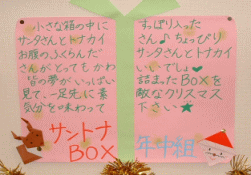 小さな箱の中に すっぽり入った
サンタさんとトナカイさん♪ちょっぴり
お腹のふくらんだサンタさんとトナカイ
さんがとってもかわいいでしょ♥
皆の夢がいっぱい詰まったBOXを
見て、一足先に素敵なクリスマス
気分を味わって下さい★
サントナBOX
年中組